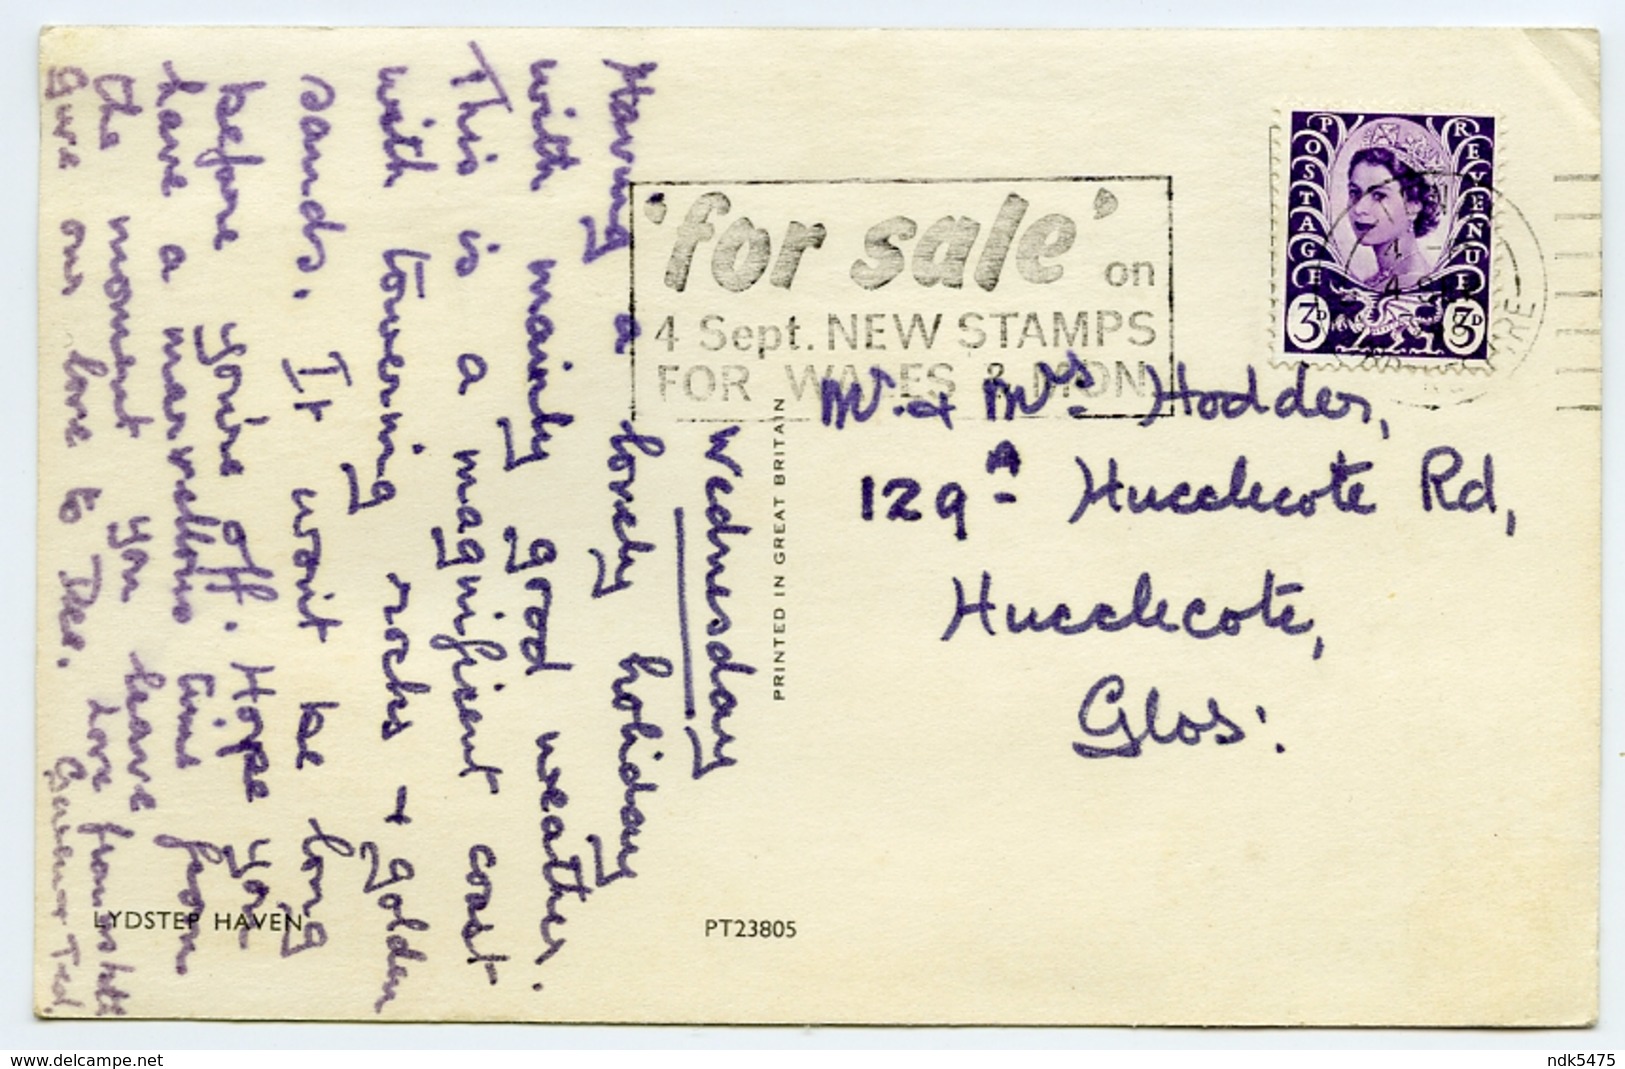 Wednesday
Having a lovely holiday
with mainly good weather.
This is a magnificent coast
with towering rocks + golden
sands. It won't be long
before you're off. Hope you
have a marvellous time from
the moment you leave
Give our love to Dee. Love from
Ted.
LYDSTEP HAVEN
PT23805
PRINTED IN GREAT BRITAIN
'for sale' on
4 Sept. NEW STAMPS
FOR WALES & MON
POSTAGE REVENUE
3D 3D
Mr. & Mrs Hodder,
129A Hucclecote Rd,
Hucclecote,
Glos:
delcampe.net
ndk5475